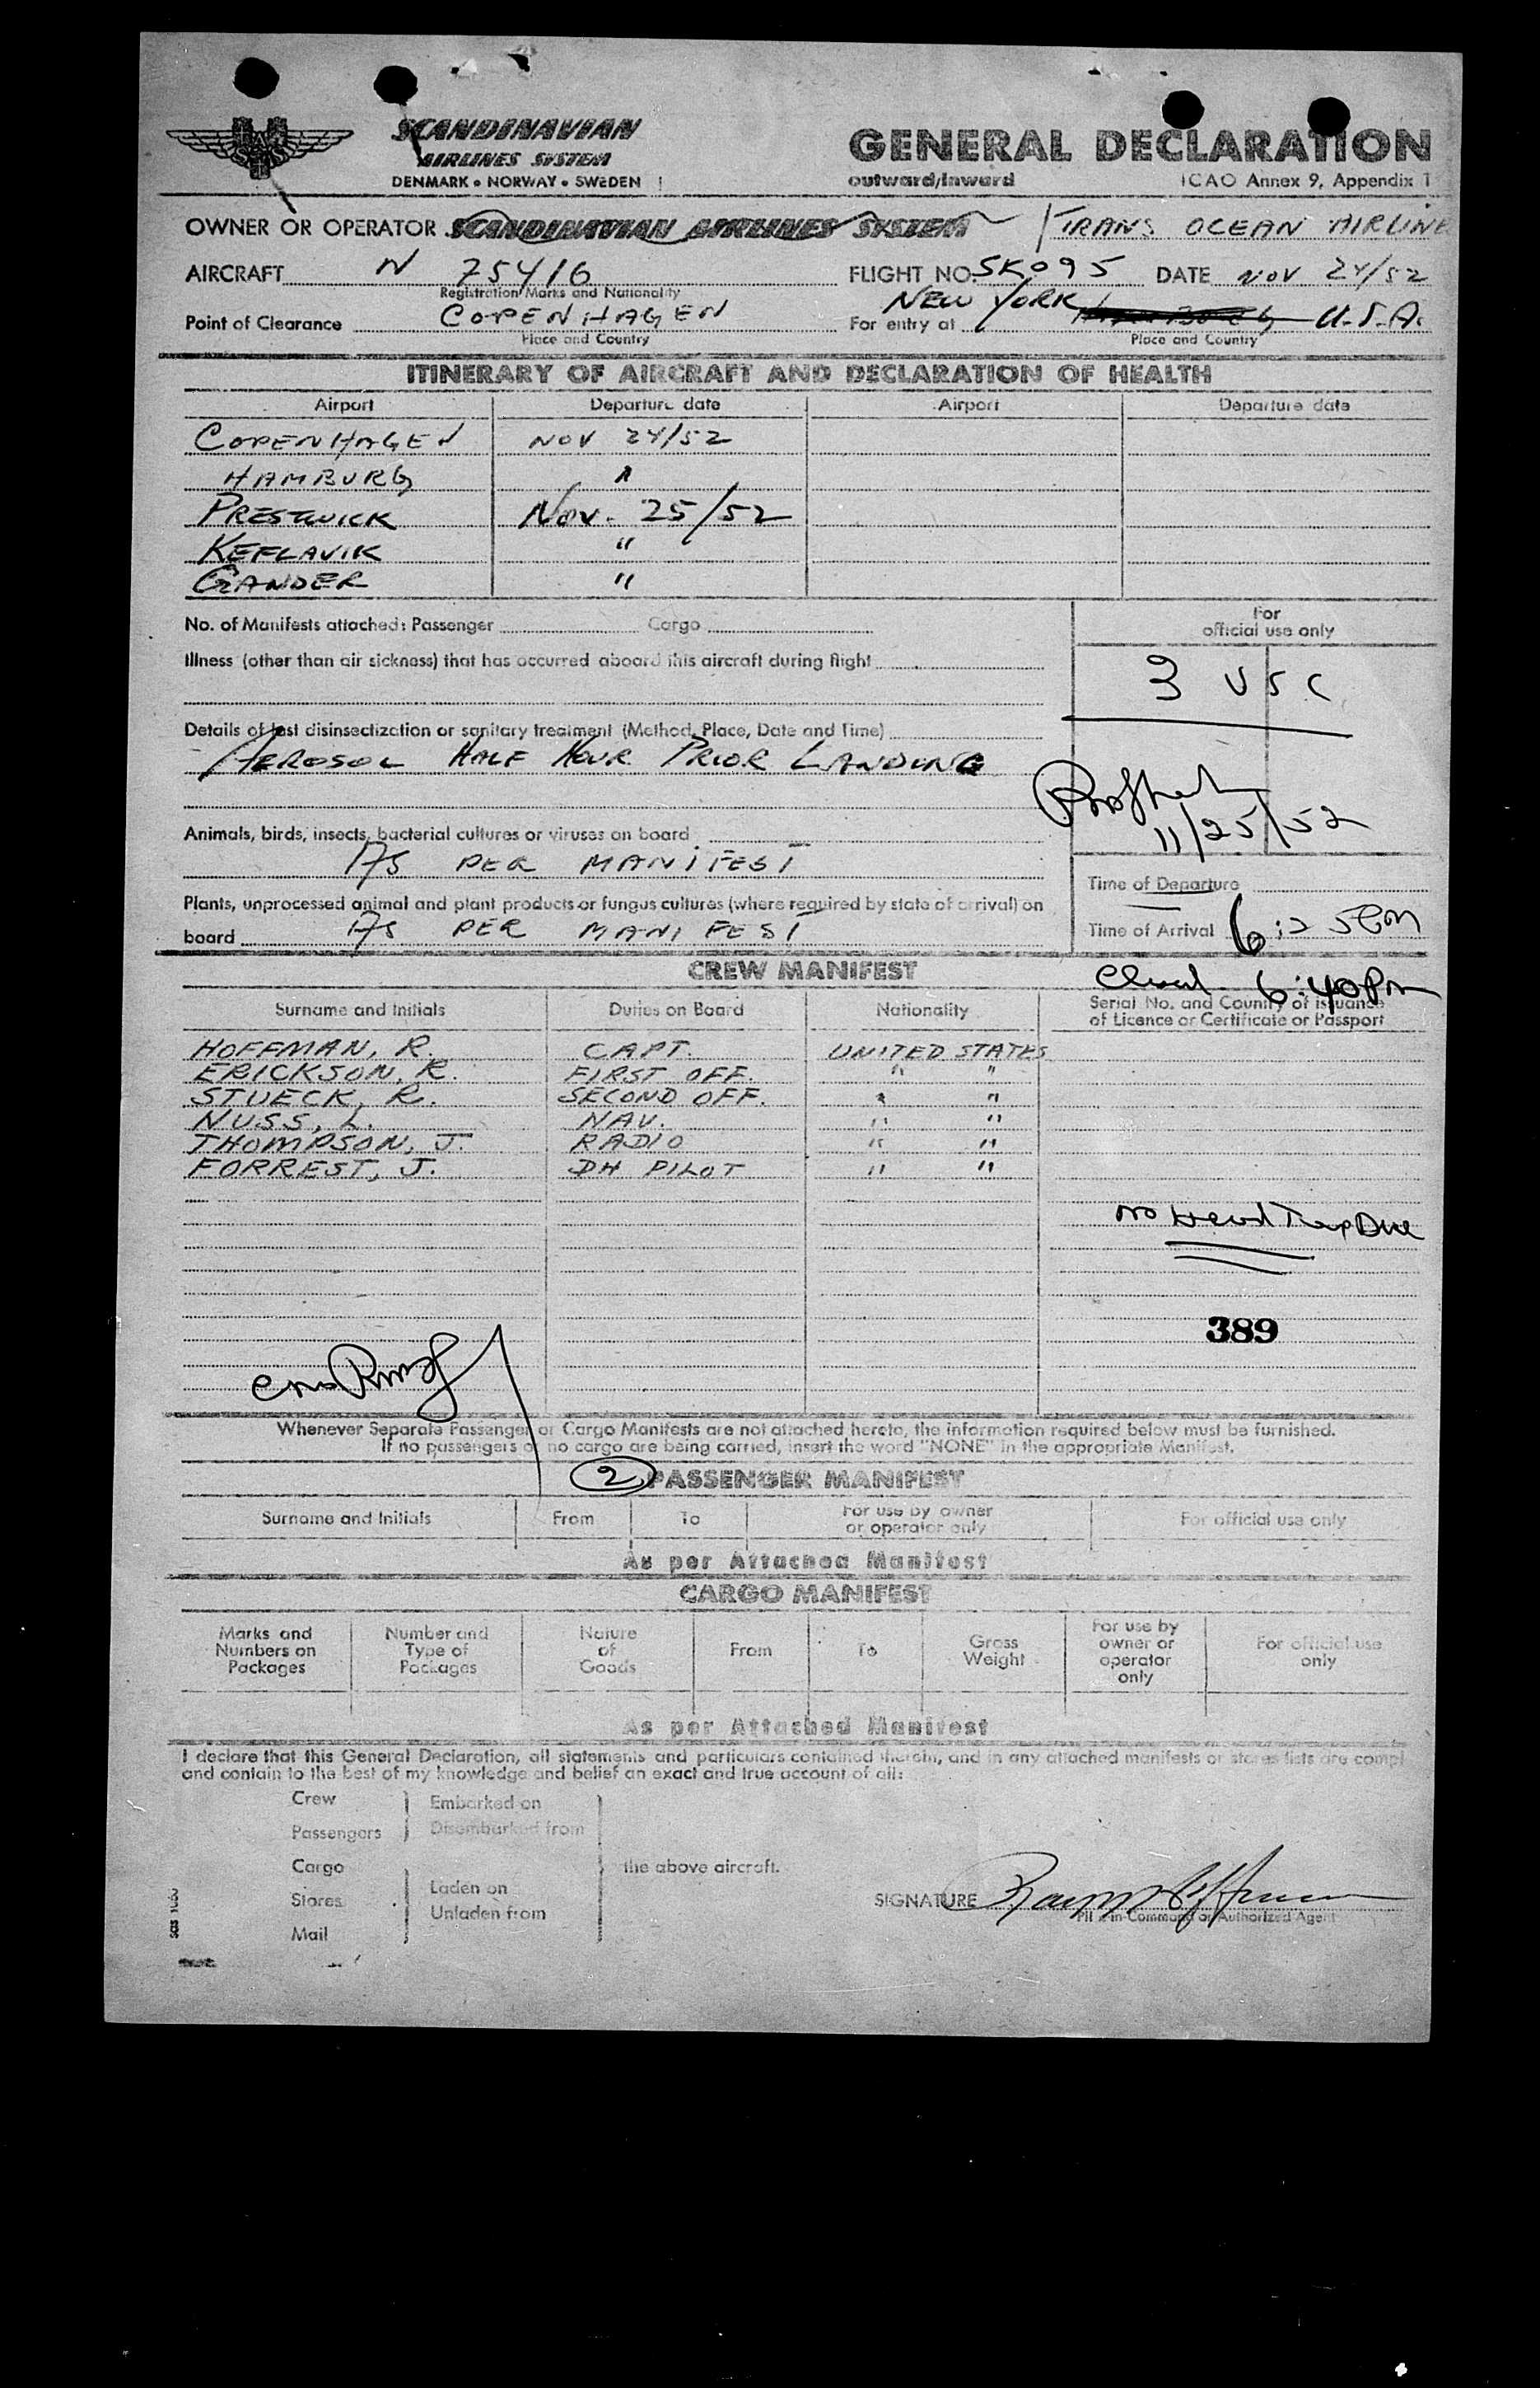 SCANDINAVIAN
AIRLINES SYSTEM
DENMARK • NORWAY • SWEDEN
GENERAL DECLARATION
outward/inward ICAO Annex 9, Appendix 1
OWNER OR OPERATOR SCANDINAVIAN AIRLINES SYSTEM TRANS OCEAN AIRLINE
AIRCRAFT N 75416 FLIGHT NO. SK095 DATE NOV 24/52
Registration Marks and Nationality
Point of Clearance COPENHAGEN For entry at NEW YORK U.S.A.
Place and Country Place and Country
ITINERARY OF AIRCRAFT AND DECLARATION OF HEALTH
Airport Departure date Airport Departure date
COPENHAGEN NOV 24/52
HAMBURG "
PRESTWICK Nov. 25/52
KEFLAVIK "
GANDER "
No. of Manifests attached: Passenger Cargo
For
official use only
Illness (other than air sickness) that has occurred aboard this aircraft during flight
3 USC
Details of last disinsectization or sanitary treatment (Method, Place, Date and Time)
AEROSOL HALF HOUR PRIOR LANDING
11/25/52
Animals, birds, insects, bacterial cultures or viruses on board
AS PER MANIFEST
Time of Departure
Plants, unprocessed animal and plant products or fungus cultures (where required by state of arrival) on
board AS PER MANIFEST
Time of Arrival 6:25 PM
CREW MANIFEST
Closed 6:40 PM
Surname and Initials Duties on Board Nationality Serial No. and County of issuance
of Licence or Certificate or Passport
HOFFMAN, R. CAPT. UNITED STATES
ERICKSON, R. FIRST OFF. " "
STUECK, R. SECOND OFF. " "
NUSS, L. NAV. " "
THOMPSON, J. RADIO " "
FORREST, J. DH PILOT " "
No Head Tax Due
389
Whenever Separate Passenger or Cargo Manifests are not attached hereto, the information required below must be furnished.
If no passengers or no cargo are being carried, insert the word "NONE" in the appropriate Manifest.
2 PASSENGER MANIFEST
Surname and Initials From To For use by owner
or operator only For official use only
As per Attached Manifest
CARGO MANIFEST
Marks and
Numbers on
Packages
Number and
Type of
Packages
Nature
of
Goods
From
To
Gross
Weight
For use by
owner or
operator
only
For official use
only
As per Attached Manifest
I declare that this General Declaration, all statements and particulars contained therein, and in any attached manifests or stores lists are compl
and contain to the best of my knowledge and belief an exact and true account of all:
Crew Embarked on
Passengers Disembarked from
Cargo the above aircraft.
Laden on
Stores
Unladen from
Mail
SIGNATURE
Pilot-in-Command or Authorized Agent